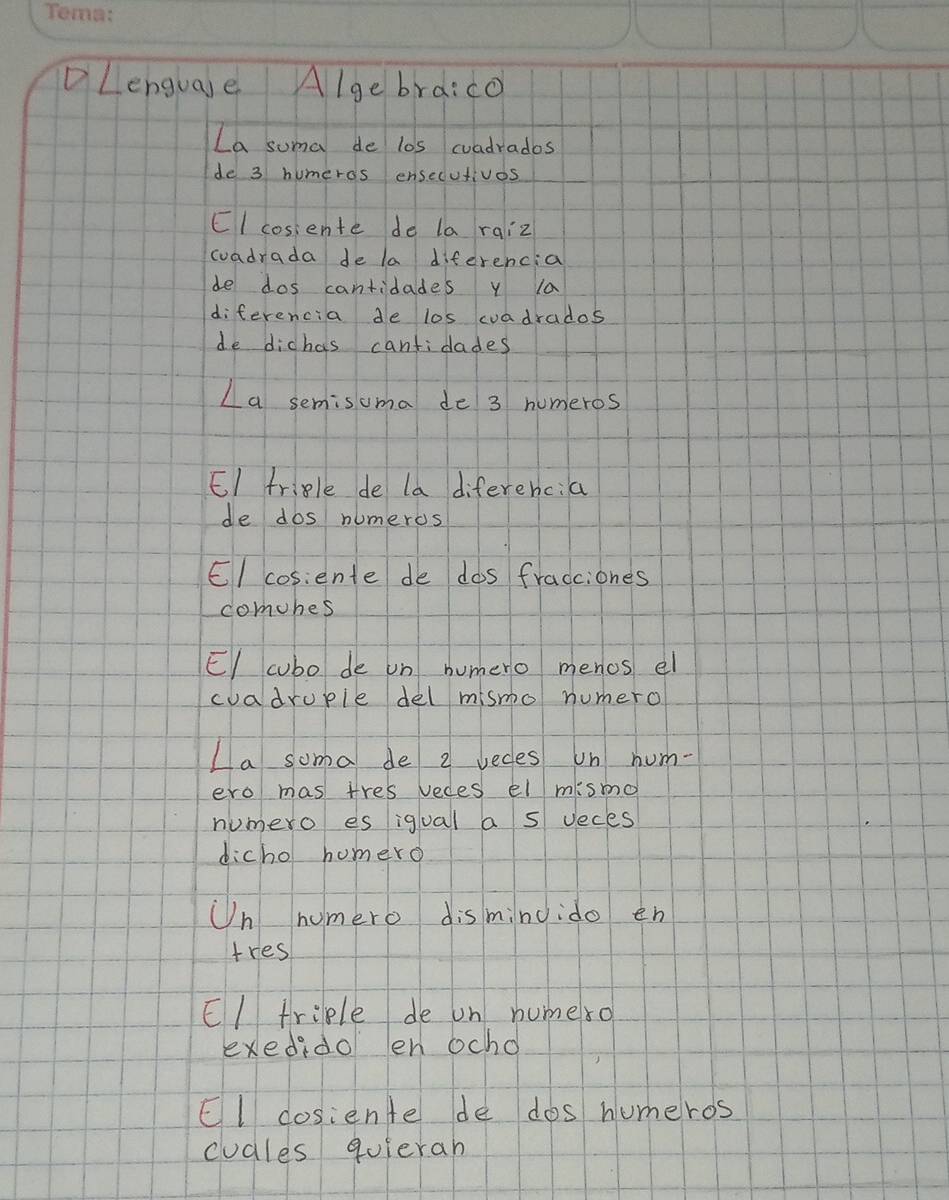 Tema:
Lenguaje Algebraico
La suma de los cuadrados
de 3 numeros ensecutivos
El cosiente de la raiz
cuadrada de la diferencia
de dos cantidades y la
diferencia de los cuadrados
de dichas cantidades
La semisuma de 3 numeros
El triple de la diferencia
de dos numeros
El cosiente de dos fracciones
comunes
El cubo de un numero menos el
cuadruple del mismo numero
La suma de 2 veces un num-
ero mas tres veces el mismo
numero es igual a 5 veces
dicho numero
Un numero disminuido en
tres
El triple de un numero
exedido en ocho
El cosiente de dos numeros
cuales quieran